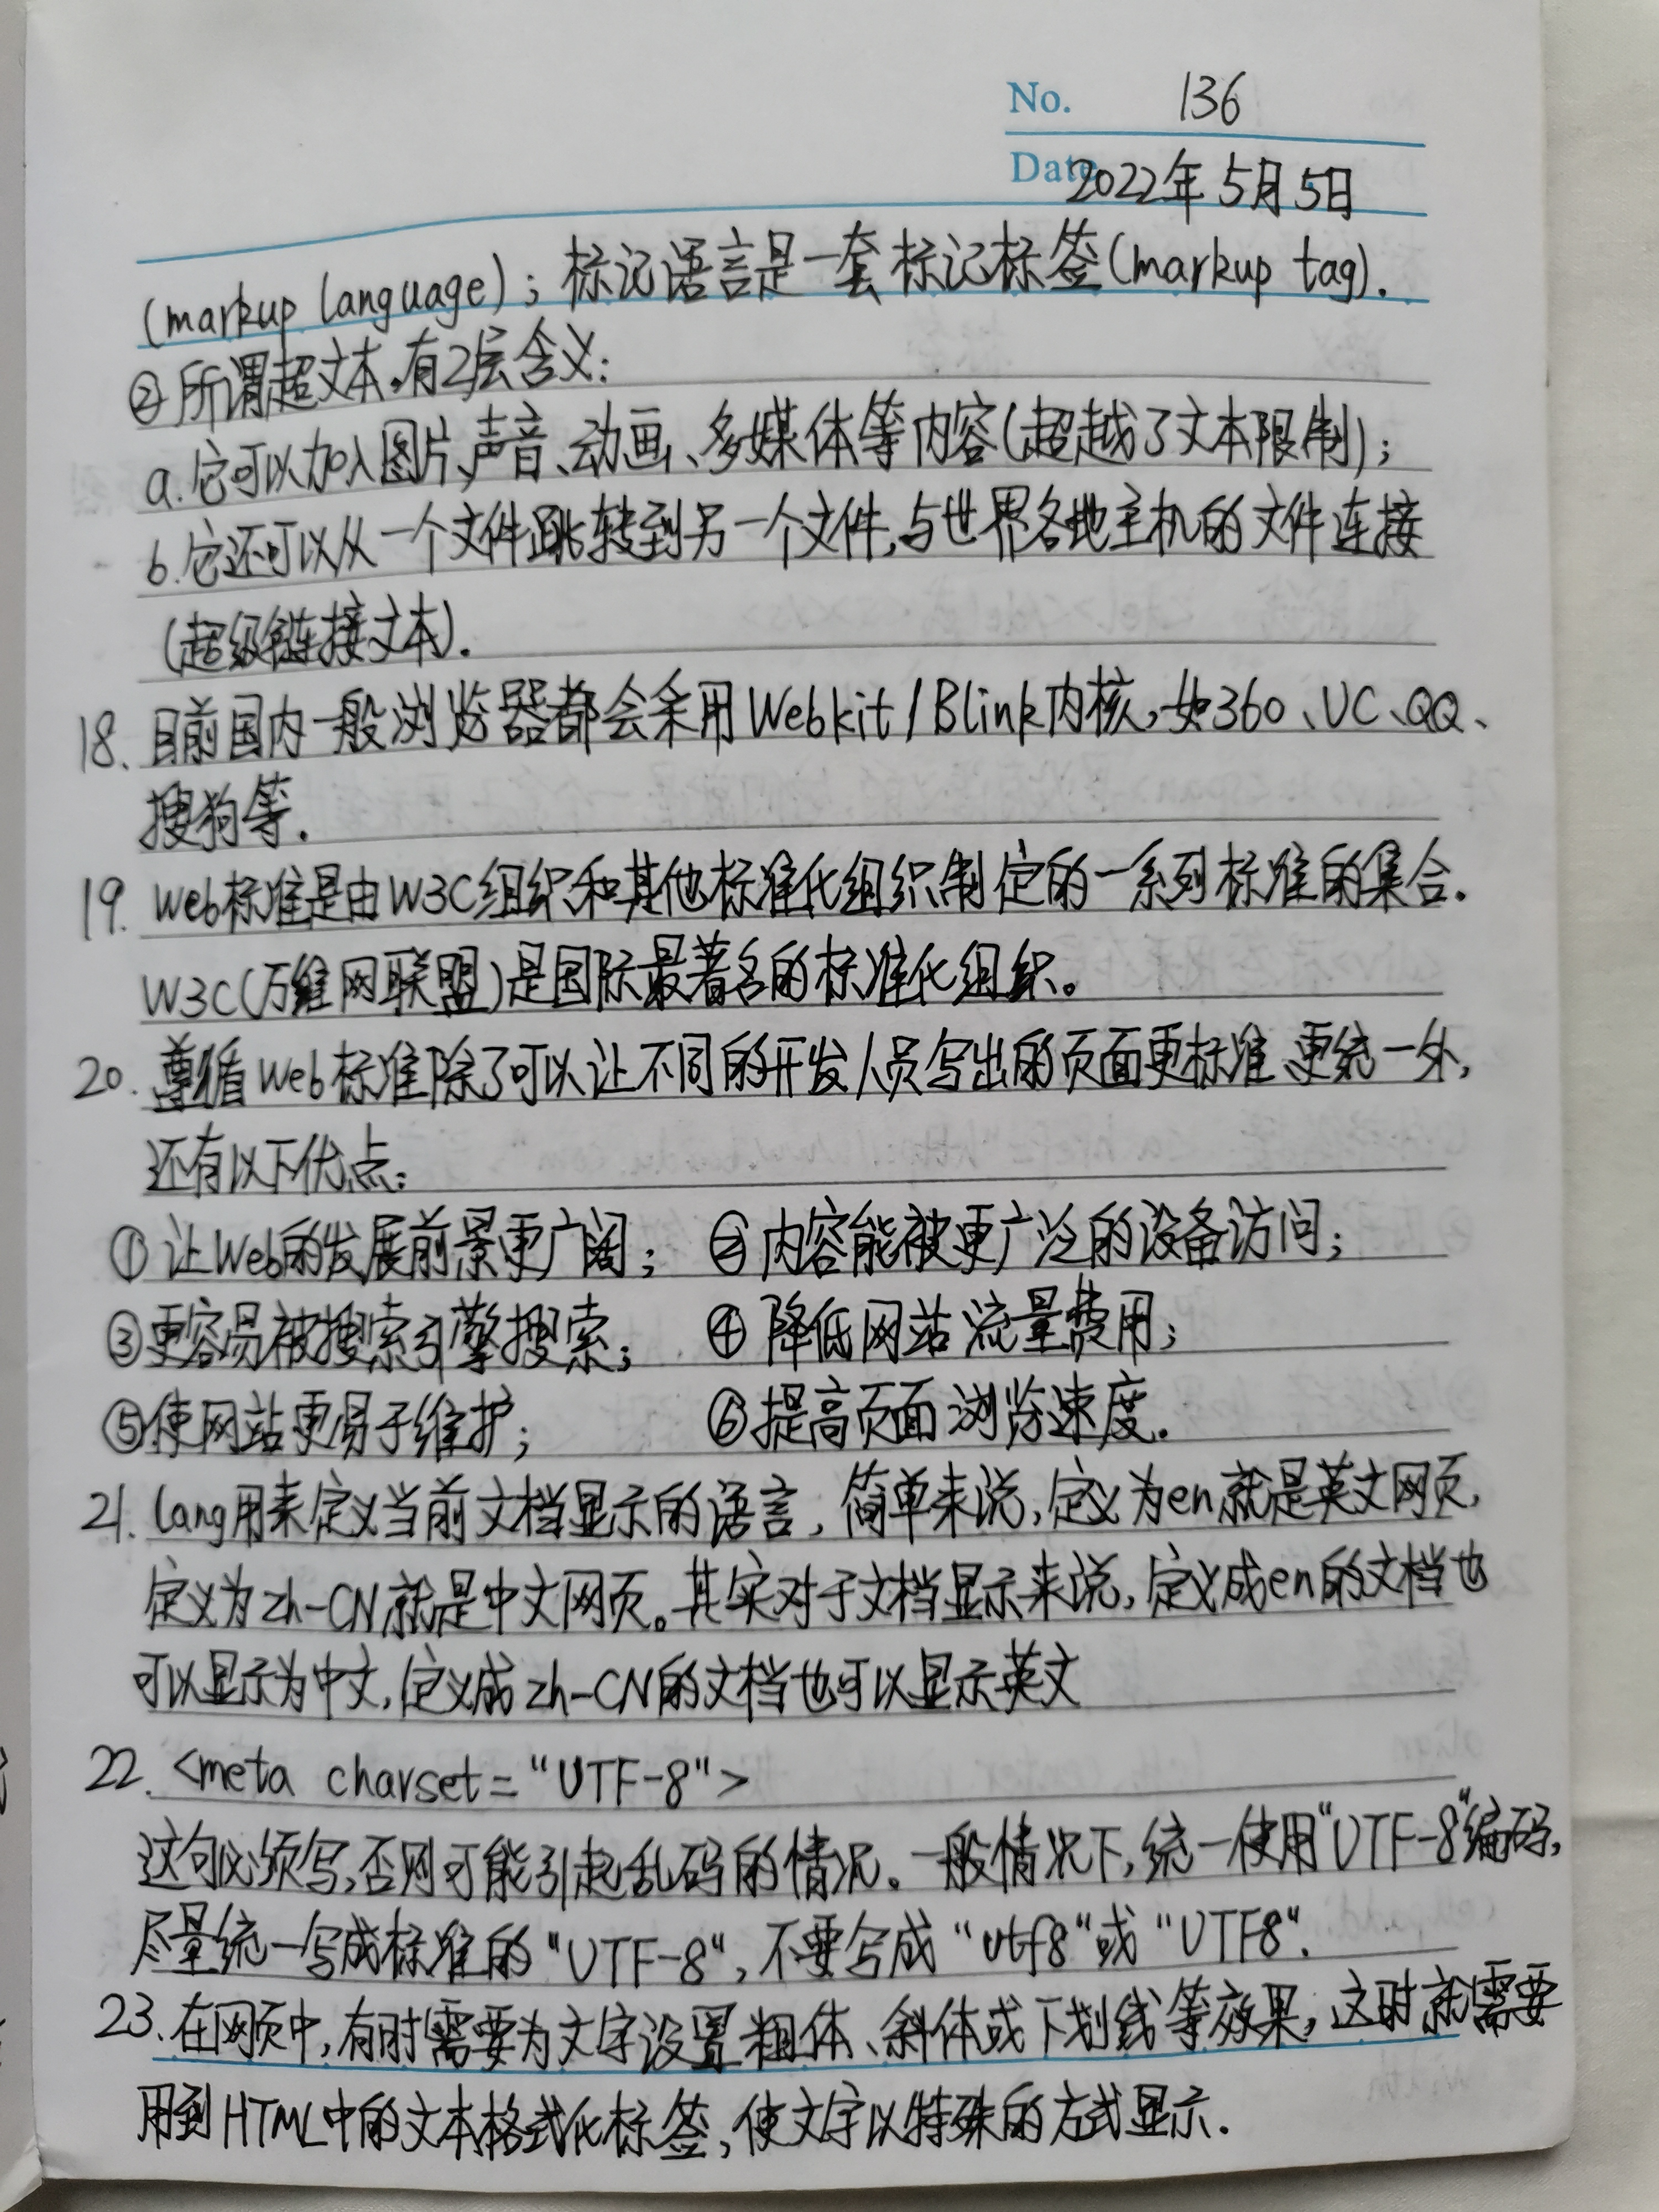 No. 136
Date 2022年5月5日
(markup language)；标记语言是一套标记标签(markup tag).
②所谓超文本,有2层含义:
a.它可以加入图片、声音、动画、多媒体等内容(超越了文本限制)；
b.它还可以从一个文件跳转到另一个文件,与世界各地主机的文件连接
(超级链接文本).
18.目前国内一般浏览器都会采用Webkit/Blink内核,如360、UC、QQ、
搜狗等.
19.Web标准是由W3C组织和其他标准化组织制定的一系列标准的集合.
W3C(万维网联盟)是国际最著名的标准化组织。
20.遵循Web标准除了可以让不同的开发人员写出的页面更标准、更统一外,
还有以下优点:
①让Web的发展前景更广阔； ②内容能被更广泛的设备访问；
③更容易被搜索引擎搜索； ④降低网站流量费用；
⑤使网站更易于维护； ⑥提高页面浏览速度.
21.lang用来定义当前文档显示的语言,简单来说,定义为en就是英文网页,
定义为zh-CN就是中文网页。其实对于文档显示来说,定义成en的文档也
可以显示为中文,定义成zh-CN的文档也可以显示英文
22.<meta charset="UTF-8">
这句必须写,否则可能引起乱码的情况。一般情况下,统一使用"UTF-8"编码,
尽量统一写成标准的"UTF-8",不要写成"utf8"或"UTF8".
23.在网页中,有时需要为文字设置粗体、斜体或下划线等效果,这时就需要
用到HTML中的文本格式化标签,使文字以特殊的方式显示.